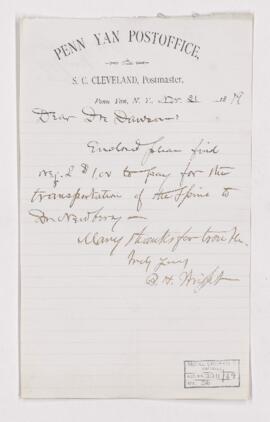 PENN YAN POSTOFFICE,
S. C. CLEVELAND, Postmaster,
Penn Yan, N. Y. Nov. 21 1879
Dear Dr Dawson:
Enclosed please find
to pay for the
transportation of the Spine to
Dr Newberry —
Many thanks for trouble.
Truly yours
Wright